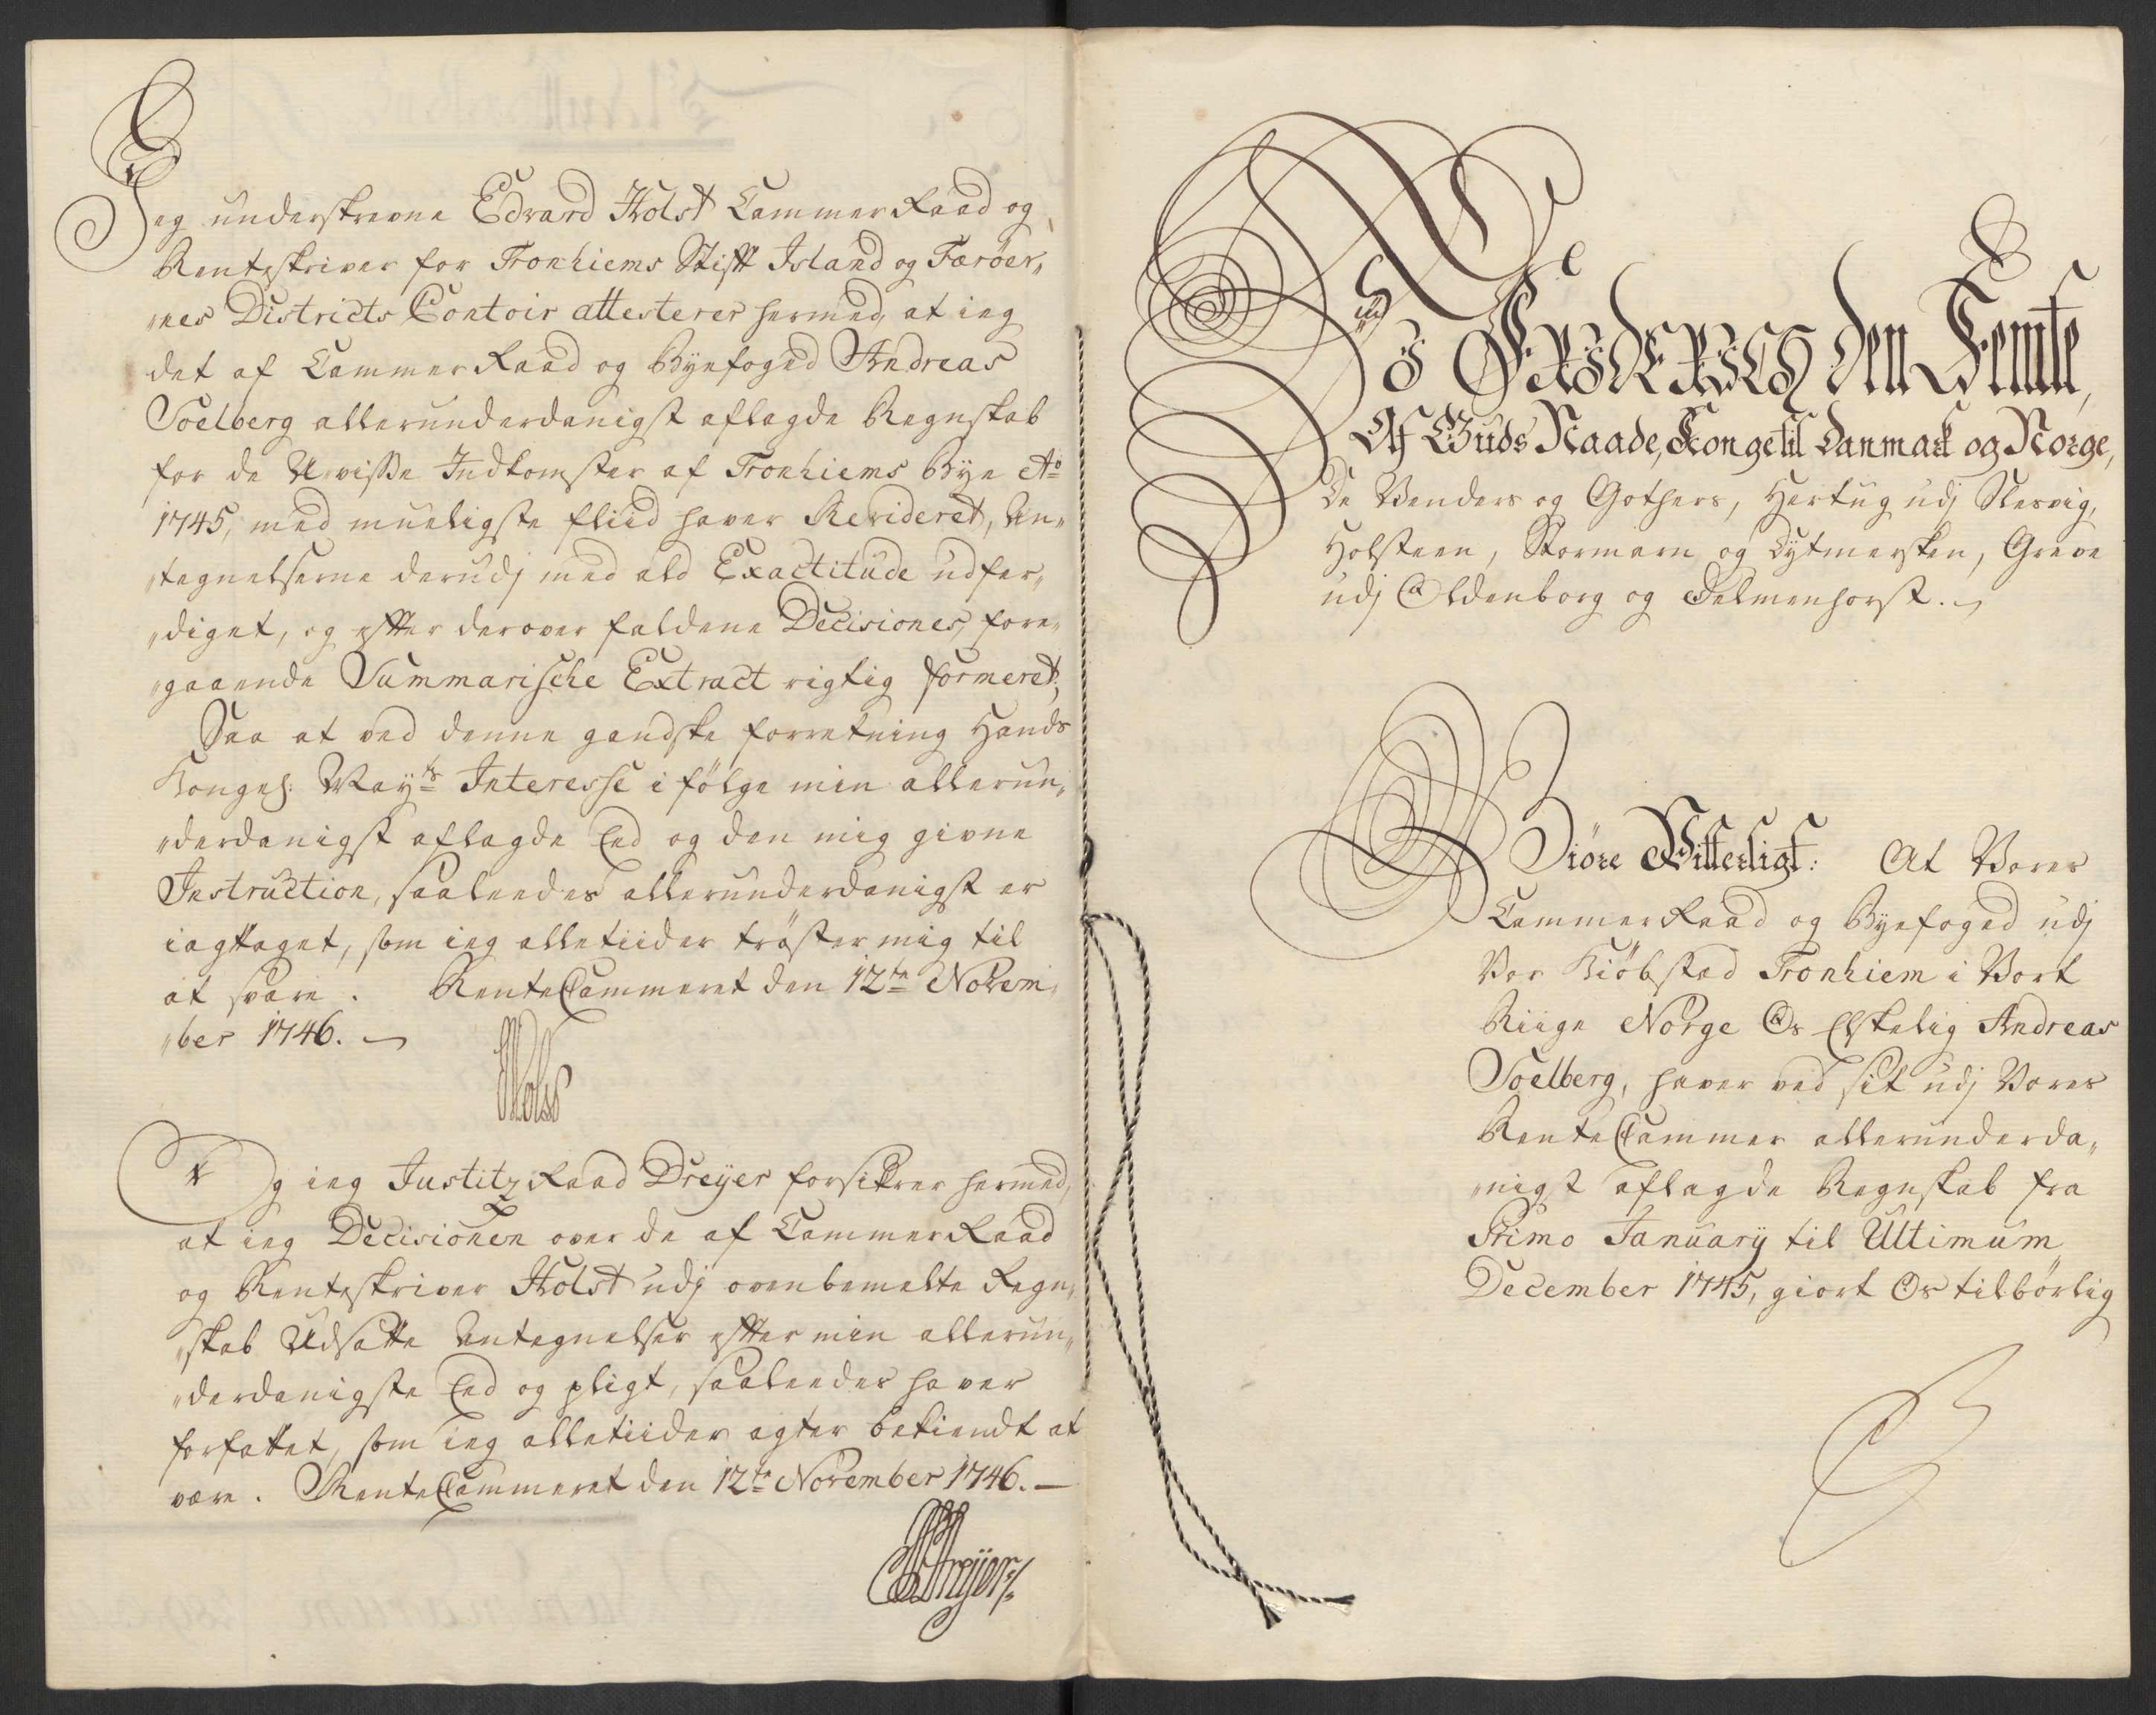 Jeg underskrevne Edvard Holst Cammer Raad og
Renteskriver for Tronhiems Stift Island og Færøer„
„nes Districts Contoir attesterer hermed, at ieg
det af Cammer Raad og Byefoged Andreas
Soelberg allerunderdanigst aflagde Regnskab
for de Uvisse Indkomster af Tronhiems Bye Ao
1745, med mueligste fliid haver Revideret, An„
„tegnelserne derudj med ald Exactitude udfær„
„diget, og efter derover faldene Decisioner, fore„
„gaaende Summarische Extract rigtig formeret;
Saa at ved denne gandske forretning Hands
Kongel: Mayts Interesse i følge min allerun„
„derdanigst aflagde Eed og den mig givne
Instruction, saaleedes allerunderdanigst er
iagttaget, som ieg alletiider trøster mig til
at svare. RenteCammeret den 12te Novem„
„ber 1746.
Holst
Og ieg Justitz Raad Dreyer forsikrer hermed,
at ieg Decisionen over de af Cammer Raad
og Renteskriver Holst udj ovenbemelte Regn„
„skab Udsatte Antegnelser efter min allerun„
„derdanigste Eed og pligt, saaleedes haver
forfattet, som ieg alletiider agter bekiendt at
være. RenteCammeret den 12te November 1746.
Dreyer
Wi FRIDERICH den Femte,
Af Guds Naade, Konge til Danmark og Norge,
De Venders og Gothers, Hertug udj Slesvig,
Holsteen, Stormarn og Dytmersken, Greve
udj Oldenborg og Delmenhorst.
Giöre Witterligt: At Vores
Cammer Raad og Byefoged udj
Vor Kiöbstad Tronhiem i Vort
Riige Norge Os Elskelig Andreas
Soelberg, haver ved sit udj Vores
RenteCammer allerunderda„
„nigst aflagde Regnskab fra
Primo January til Ultimum
December 1745, giort Os tilbörlig